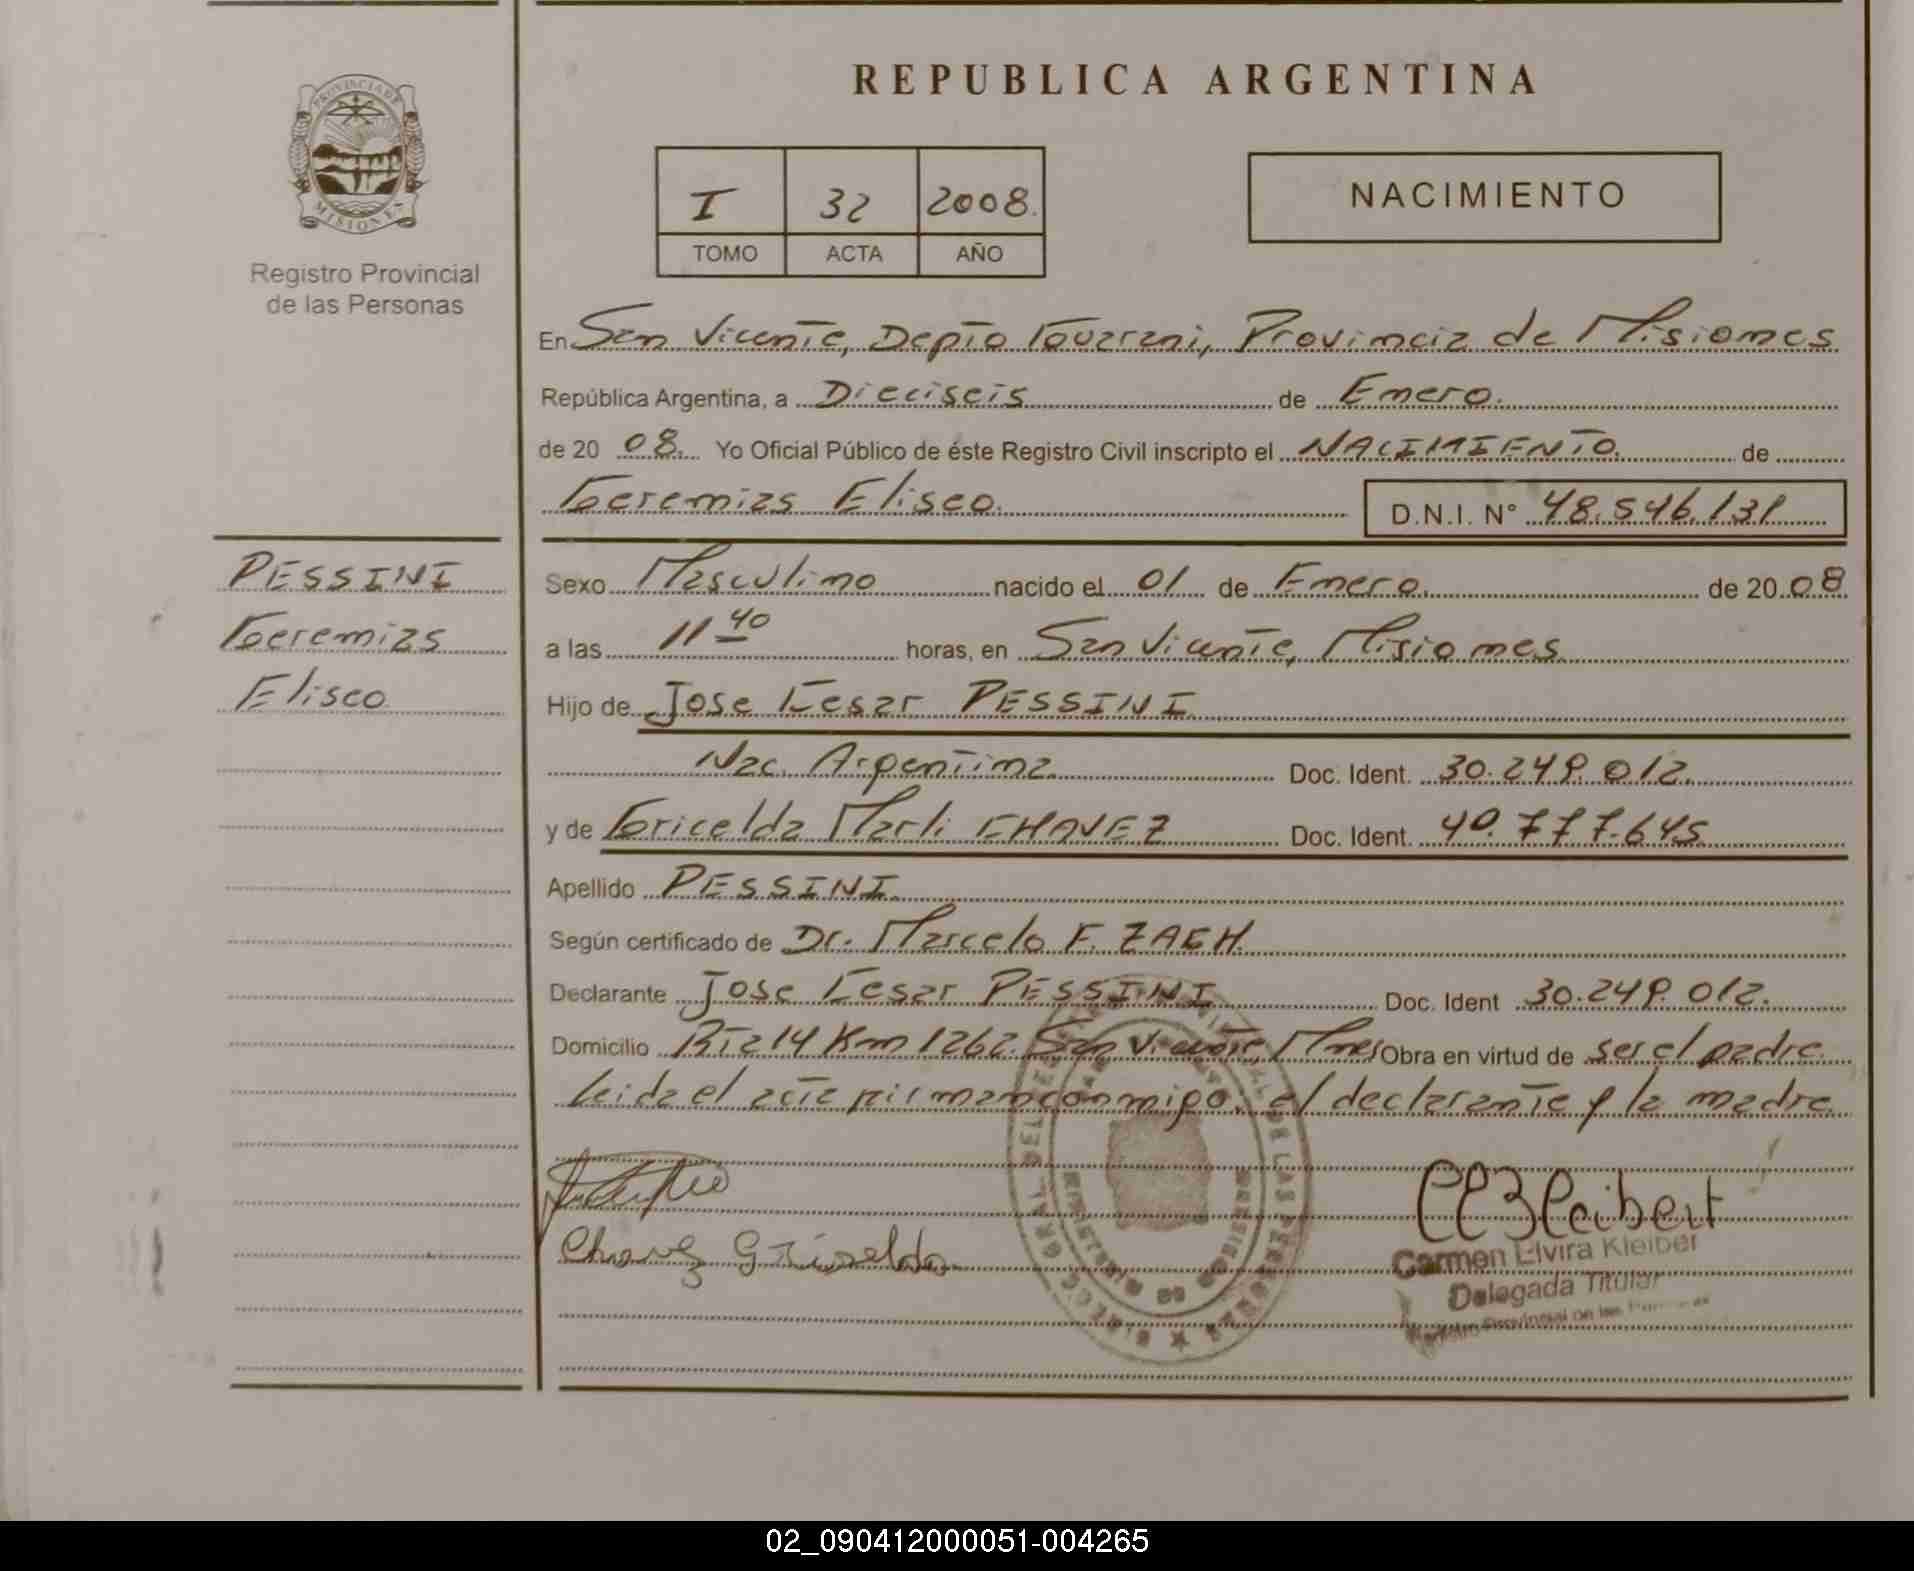 REPUBLICA ARGENTINA
PROVINCIA DE
MISIONES
Registro Provincial
de las Personas
I 32 2008.
TOMO ACTA AÑO
NACIMIENTO
En San Vicente, Depto Guarani, Provincia de Misiones
República Argentina, a Dieciseis de Enero.
de 20 08. Yo Oficial Público de éste Registro Civil inscripto el NACIMIENTO. de
Geremias Eliseo. D.N.I. N° 48.546.131
PESSINI
Geremias
Eliseo
Sexo Masculino nacido el 01 de Enero. de 20 08
a las 11 40 horas, en San Vicente, Misiones
Hijo de Jose Cesar PESSINI
Nac. Argentina Doc. Ident. 30.249.012.
y de Gricelda Marli CHAVEZ Doc. Ident. 40.777.645
Apellido PESSINI.
Según certificado de Dr. Marcelo F. ZACH.
Declarante Jose Cesar PESSINI Doc. Ident 30.249.012.
Domicilio Rta 14 Km 1262. San Vicente, Mnes Obra en virtud de ser el padre.
Leida el acta firman conmigo, el declarante y la madre
Chavez Griselda
CEKleibert
Carmen Elvira Kleiber
Delegada Titular
Registro Provincial de las
DE LAS PERSONAS
02_090412000051-004265